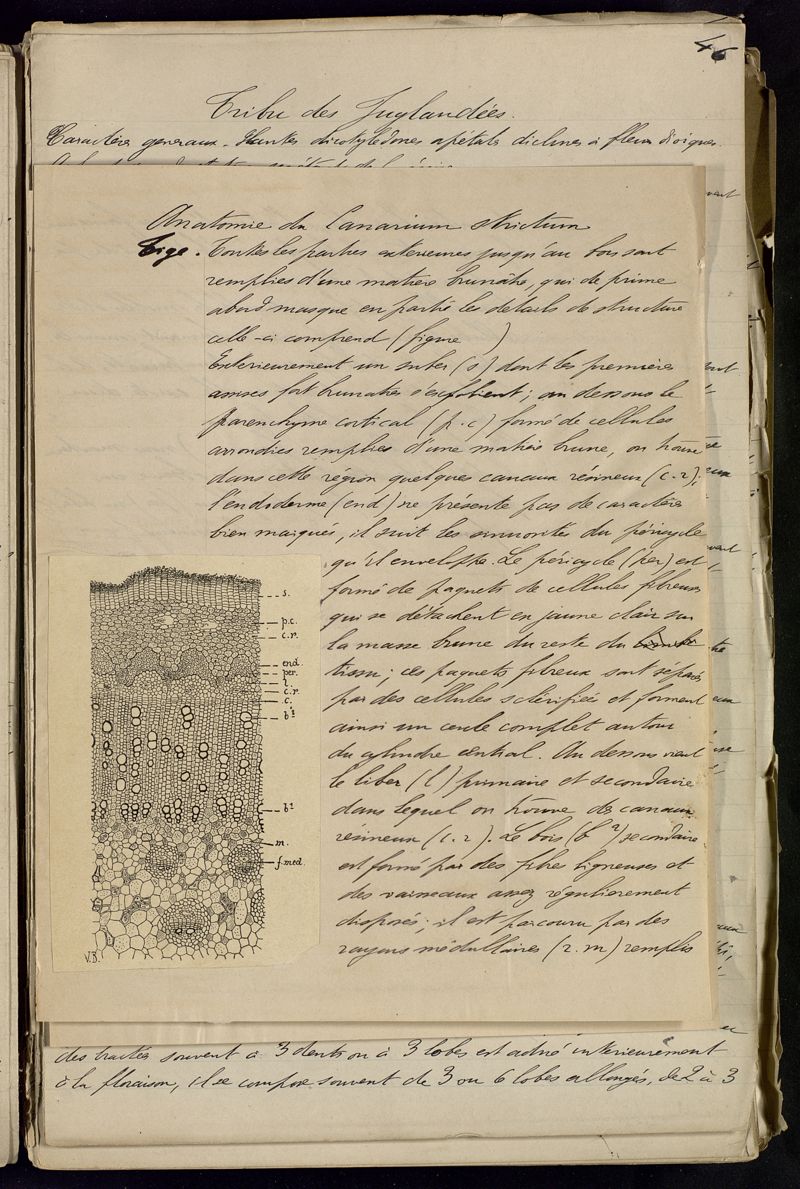 46
Tribu des Juglandées.
Caractères generaux. Plantes dicotylédones apétales diclines à fleurs dioïques.
Anatomie du Canarium strictum
Tige. Toutes les parties exterieures jusqu'au bois sont
remplies d'une matière brunâtre, qui de prime
abord masque en partie les details de structure
celle-ci comprend (figure )
Exterieurement un suber (s) dont les premières
assises fort brunatres s'exfolient; au dessous le
parenchyme cortical (p.c) formé de cellules
arrondies remplies d'une matière brune, on trouve
dans cette région quelques canaux résineux (c.r);
l'endoderme (end) ne présente pas de caractère
bien marqués, il suit les sinuosités du péricycle
qu'il enveloppe. Le péricycle (per) est
formé de paquets de cellules fibreuses
qui se détachent en jaune clair sur
la masse brune du reste du
tissu; ces paquets fibreux sont séparés
par des cellules sclérifiées et forment
ainsi un cercle complet autour
du cylindre central. Au dessous vient
le liber (l) primaire et secondaire
dans lequel on trouve des canaux
resineux (c.r). Le bois (b²) secondaire
est formé par des fibres ligneuses et
des vaisseaux assez régulierement
disposés; il est parcouru par des
rayons médullaires (r.m) remplis
s.
p.c.
c.r.
end.
per.
l.
c.r.
c.
b²
b¹
m.
f.med.
V.D.
des bractées souvent à 3 dents ou à 3 lobes est adné interieurement
à la floraison, il se compose souvent de 3 ou 6 lobes allongés, de 2 à 3